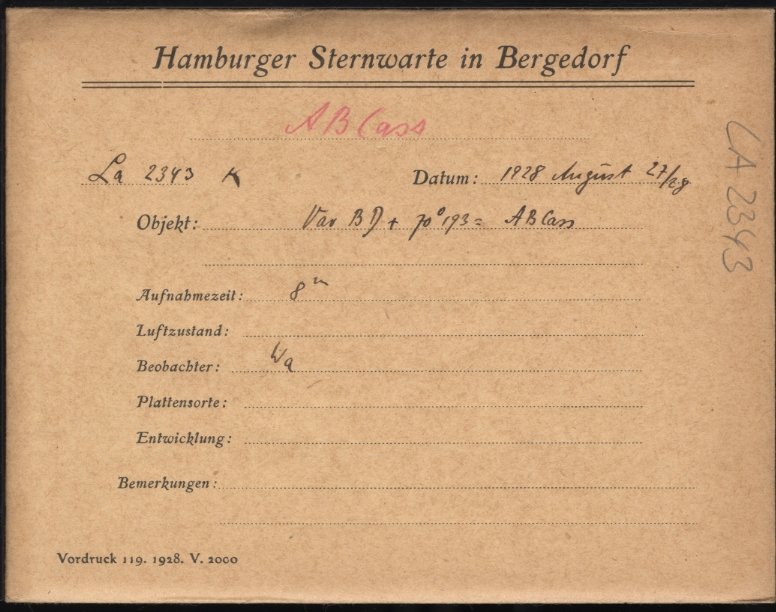 Hamburger Sternwarte in Bergedorf
AB Cass
La 2343 K Datum: 1928 August 27/28
Objekt: Var BD + 70° 193 = AB Cass
Aufnahmezeit: 8ᵐ
Luftzustand:
Beobachter: Wa
Plattensorte:
Entwicklung:
Bemerkungen:
Vordruck 119. 1928. V. 2000
LA 2343